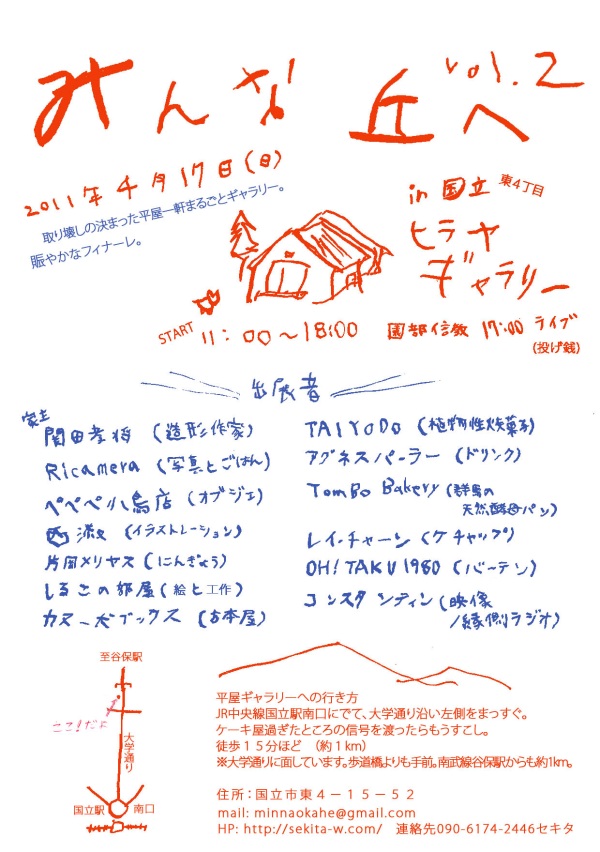 みんな 丘へ vol.2
2011年4月17日(日)
取り壊しの決まった平屋一軒まるごとギャラリー。
賑やかなフィナーレ。
in 国立 東4丁目
ヒラヤ
ギャラリー
START 11:00〜18:00 園部信教 17:00 ライブ
(投げ銭)
出展者
家主
関田孝将 (造形作家)
Ricamera (写真とごはん)
ペペペ小鳥店 (オブジェ)
西淑 (イラストレーション)
片岡メリヤス (にんぎょう)
しるこの部屋 (絵と工作)
カヌー犬ブックス (古本屋)
TAIYODO (植物性焼菓子)
アグネスパーラー (ドリンク)
TomBo Bakery (群馬の
天然酵母パン)
レイ・チャーン (ケチャップ)
OH! TAKU 1980 (バーテン)
コンスタンティン (映像
/縁側ラジオ)
至谷保駅
ここ!だよ
大学通り
国立駅 南口
平屋ギャラリーへの行き方
JR中央線国立駅南口にでて、大学通り沿い左側をまっすぐ。
ケーキ屋過ぎたところの信号を渡ったらもうすこし。
徒歩15分ほど (約1km)
※大学通りに面しています。歩道橋よりも手前。南武線谷保駅からも約1km。
住所:国立市東4−15−52
mail: minnaokahe@gmail.com
HP: http://sekita-w.com/ 連絡先090-6174-2446セキタ